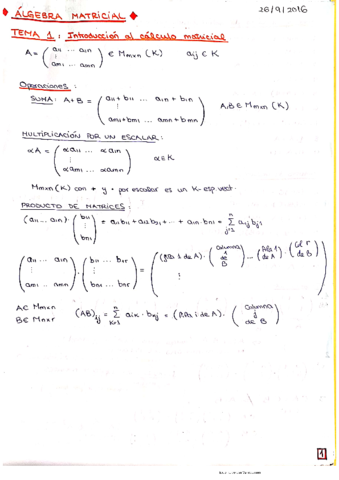 ÁLGEBRA MATRICIAL 26/9/2016
TEMA 1: Introducción al cálculo matricial
A = ( a11 ... a1n ; ⋮ ; am1 ... amn ) ∈ Mmxn (K) aij ∈ K
Operaciones:
SUMA: A+B = ( a11 + b11 ... a1n + b1n ; ⋮ ; am1+bm1 ... amn + bmn ) A,B ∈ Mmxn (K)
MULTIPLICACIÓN POR UN ESCALAR:
αA = ( αa11 ... αa1n ; ⋮ ; αam1 ... αamn ) α ∈ K
Mmxn (K) con + y · por escalar es un K-esp. vect.
PRODUCTO DE MATRICES:
(a11 ... a1n) · ( b11 ; ⋮ ; bn1 ) = a11 b11 + a12 b21 + ... + a1n · bn1 = Σ a1j bj1
( a11 ... a1n ; ⋮ ; am1 ... amn ) · ( b11 ... b1r ; ⋮ ; bn1 ... bnr ) = ( (fila 1 de A) · ( Columna 1 de B ) ... (fila 1) · ( Col r de B ) ; ⋮ )
A ∈ Mmxn
B ∈ Mnxr
(AB)ij = Σ aik · bkj = (fila i de A) · ( Columna j de B )
1